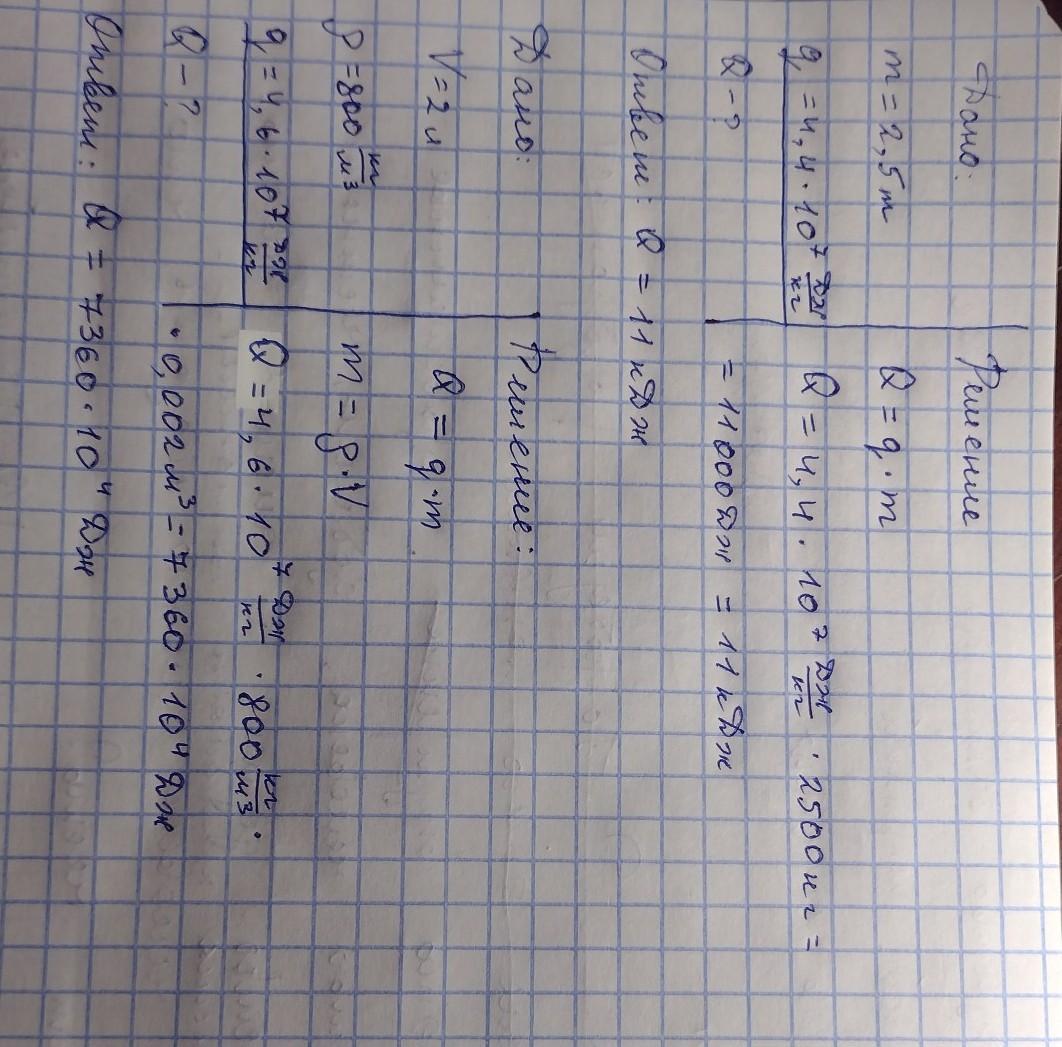 Дано:
m = 2,5 т
q = 4,4 · 10⁷ Дж/кг
Q – ?
Решение
Q = q · m
Q = 4,4 · 10⁷ Дж/кг · 2500 кг =
= 11000 Дж = 11 кДж
Ответ: Q = 11 кДж
Дано:
V = 2 л
ρ = 800 кг/м³
q = 4,6 · 10⁷ Дж/кг
Q – ?
Решение:
Q = q · m
m = ρ · V
Q = 4,6 · 10⁷ Дж/кг · 800 кг/м³ ·
· 0,002 м³ = 7360 · 10⁴ Дж
Ответ: Q = 7360 · 10⁴ Дж